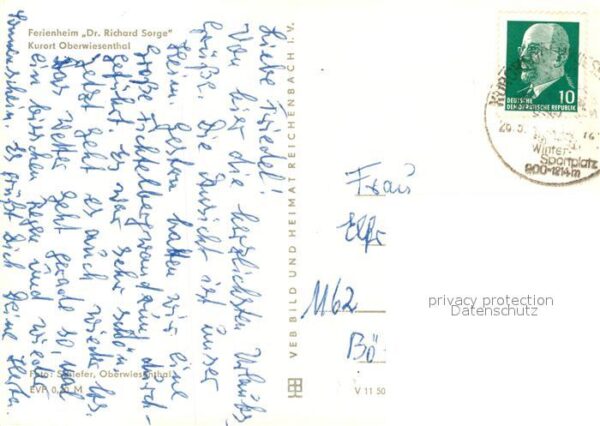 Ferienheim „Dr. Richard Sorge"
Kurort Oberwiesenthal
Liebe Friedel!
Von hier die herzlichsten Urlaubs
Grüße. Die Aussicht ist unser
Heim. Gestern hatten wir eine
große Fichtelbergwanderung durch-
geführt. Es war sehr schön.
Jetzt geht es auch wieder los.
Das Wetter geht gerade so, mal
ein bisschen Regen und wieder
Sonnenschein. Es grüßt Dich Deine Herta
Foto: Schiefer, Oberwiesenthal
EVP 0,20 M
VEB BILD UND HEIMAT REICHENBACH I. V.
V 11 50
DEUTSCHE
DEMOKRATISCHE REPUBLIK
10
Winter-
Sportplatz
900-1214 m
Frau
Elfr
1162
Bö
privacy protection
Datenschutz